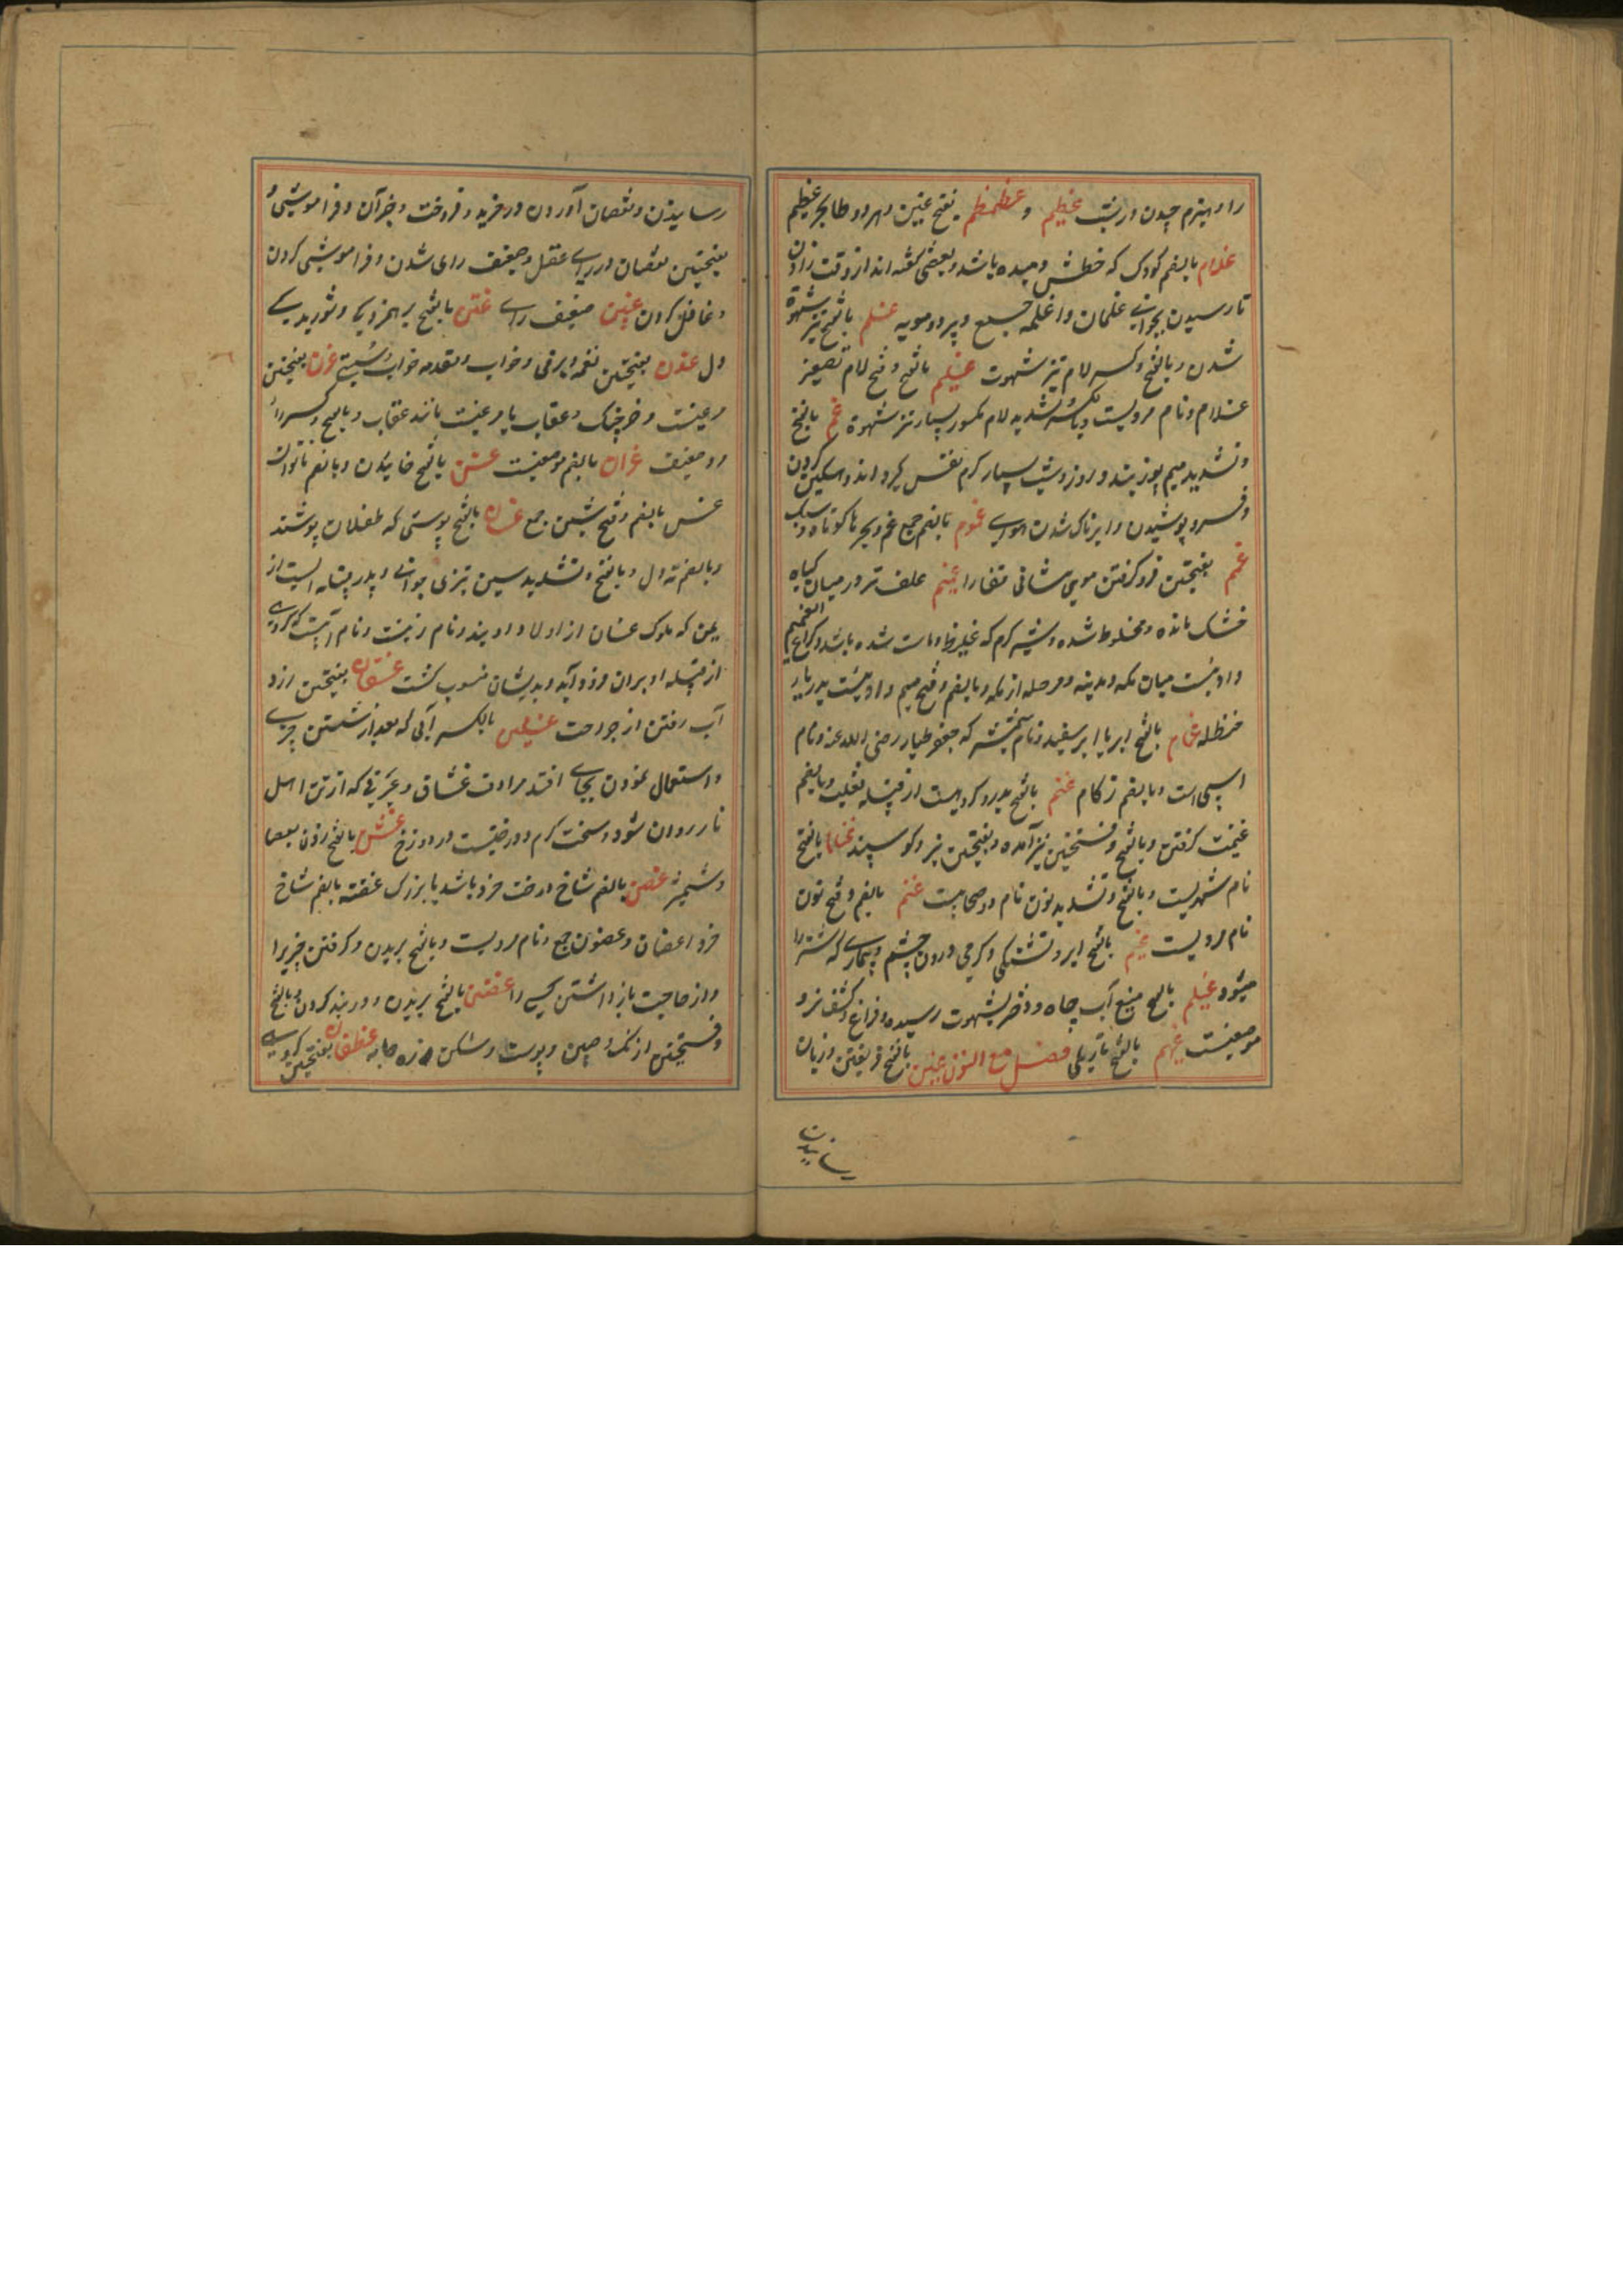 را و هیزم چیدن در شب غطیم و غطمطم بفتح غین و هر دو طا بحر عظیم
غلام بالضم کودک که خطش دمیده باشد و بعضی گفته اند از وقت زادن
تا رسیدن بجوانی غلمان و اغلمه جمع و پیر دو مویه غلم بالفتح تیز شهوة
شدن و بالفتح و کسر لام تیز شهوت غلیم بالضم و فتح لام تصغیر
غلام و نام مردیست و بکسر و تشدید لام مکسور بسیار تیز شهوة غم بالفتح
و تشدید میم پوز بند و روز و شب بسیار گرم نفس گیر و اندوهگین کردن
و پوشیدن و ابرناک شدن هوا غموم بالضم جمع غم
غمم بفتحتین فرو گرفتن موی پیشانی و قفا را غمیم علف تر در میان گیاه
خشک مانده و مخلوط شده و شیر گرم که غلیظ و ماست شده باشد و کراع الغمیم
وادئیست میان مکه و مدینه دو مرحله از مکه و بالضم و فتح میم وادئیست بدیار
حنظله غمام بالفتح ابر یا ابر سفید و نام شمشیر جعفر طیار رضی الله عنه و نام
اسپی است و بالضم زکام غنم بالفتح پدر گروهیست از قبیله تغلب و بالضم
غنیمت گرفتن و بالفتح و فتحتین نیز آمده و بفتحتین بز و گوسپند غنام بالفتح
نام شتریست و بالفتح و تشدید نون نام دو صحابیست غنیم بالضم و فتح نون
نام مردیست غیم بالفتح ابر و تشنگی و گرمی درون چشم و بیماری که شتر را
میشود غیلم بالفتح منبع آب چاه و دختر بشهوت رسیده و فراخ و کشف نر و
موضعیست غیهم بالفتح تاریکی فصل مع النون غبن بالفتح فریفتن و زیان
رسانیدن و نقصان آوردن در خرید و فروخت و جز آن و فراموشی و
بفتحتین نقصان در رای و عقل و ضعیف رای شدن و فراموشی کردن
و غافل کردن غبین ضعیف رای غثن بالفتح
دل غدن بفتحتین نعمه و نرمی و خواب و مقدمه خواب و سستی غرن بفتحتین
مرغیست و خرچنگ و عقاب یا مرغیست مانند عقاب و بالفتح و کسر را
مرد ضعیف غران بالضم موضعیست غسن بالفتح خائیدن و بالضم ناتوان
غسن بالضم و فتح سین جمع غسان بالفتح پوستی که طفلان پوشند
و بالضم ته دل و بالفتح و تشدید سین تیزی جوانی و پدر قبیله ایست از
یمن که ملوک غسان از اولاد اویند و نام زنیست و نام آبیست که گروهی
از قبیله او بران فرود آید و بدیشان منسوب گشت غسقان بفتحتین زرد
آب رفتن از جراحت غسلین بالکسر آبی که بعد از شستن چیزی
و استعمال نمودن بجای افتد مرادف غساق و چیزی که از تن اهل
نار روان شود و سخت گرم و درختیست در دوزخ غشن بالفتح زدن بعصا
و شمشیر غصن بالضم شاخ درخت خرد باشد یا بزرگ غصنه بالضم شاخ
خرد اغصان و غصون جمع و نام مردیست و بالفتح بریدن و گرفتن چیزیرا
و از حاجت باز داشتن کسی را غضن بالفتح بریدن و در بند کردن و بالفتح
و فتحتین از نگ و چین و پوست و شکن زره و جامه غطفان بفتحتین گروهی
سانیدن